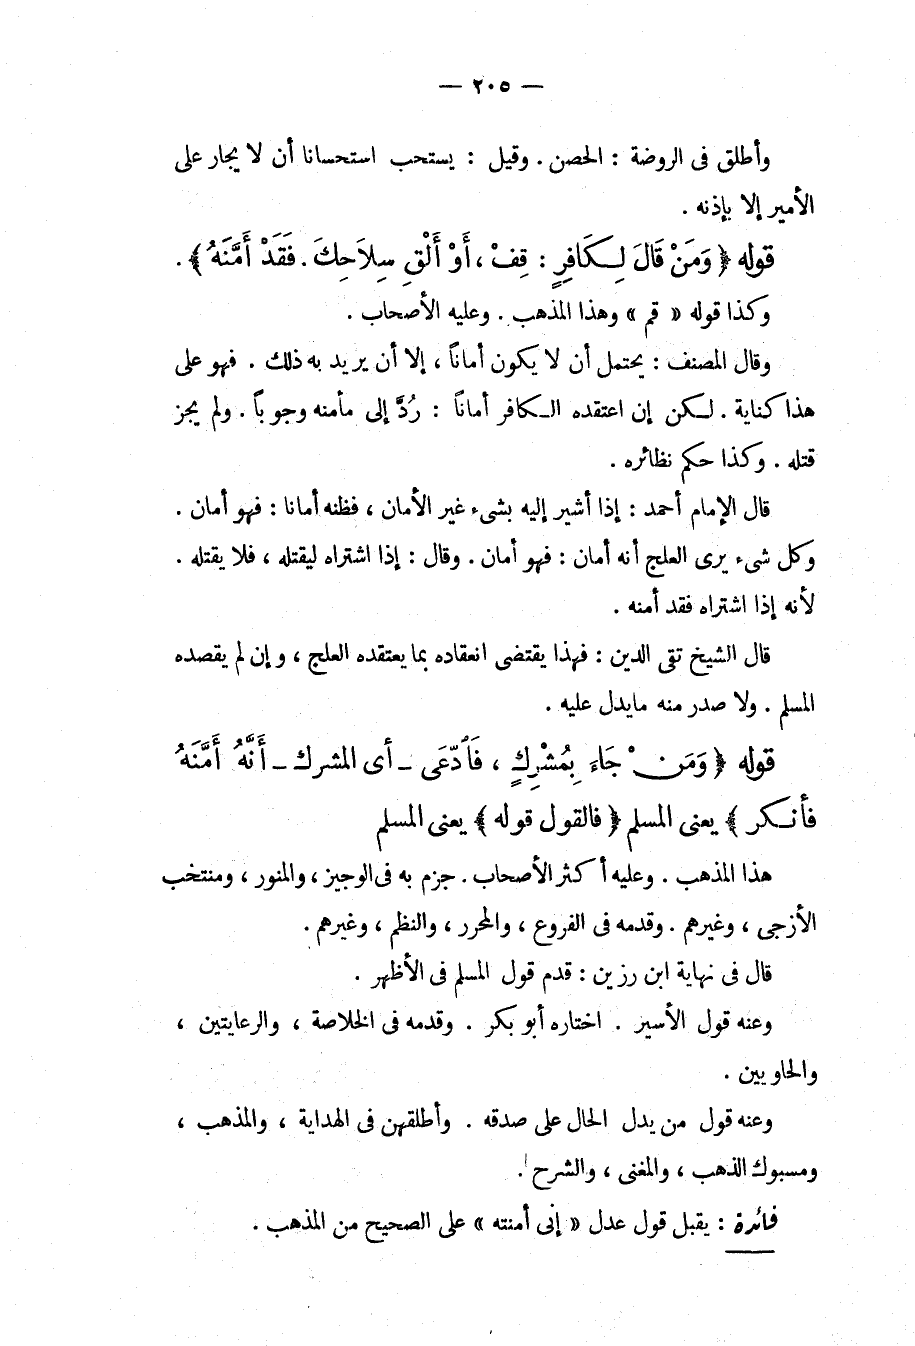 — ٢٠٥ —
وأطلق فى الروضة : الحصن . وقيل : يستحب استحسانا أن لا يجار على
الأمير إلا بإذنه .
قوله ﴿ وَمَنْ قَالَ لِكَافِرٍ : قِفْ ، أَوْ أَلْقِ سِلاَحِكَ . فَقَدْ أَمَّنَهُ ﴾ .
وكذا قوله « قم » وهذا المذهب . وعليه الأصحاب .
وقال المصنف : يحتمل أن لا يكون أماناً ، إلا أن يريد به ذلك . فهو على
هذا كناية . لكن إن اعتقده الكافر أماناً : رُدَّ إلى مأمنه وجوباً . ولم يجز
قتله . وكذا حكم نظائره .
قال الإمام أحمد : إذا أشير إليه بشىء غير الأمان ، فظنه أمانا : فهو أمان .
وكل شىء يرى العلج أنه أمان : فهو أمان . وقال : إذا اشتراه ليقتله ، فلا يقتله .
لأنه إذا اشتراه فقد أمنه .
قال الشيخ تقى الدين : فهذا يقتضى انعقاده بما يعتقده العلج ، وإن لم يقصده
المسلم . ولا صدر منه مايدل عليه .
قوله ﴿ وَمَنْ جَاءَ بِمُشْرِكٍ ، فَأدّعَى ـ أى المشرك ـ أَنَّهُ أَمَّنَهُ
فأنكر ﴾ يعنى المسلم ﴿ فالقول قوله ﴾ يعنى المسلم
هذا المذهب . وعليه أكثر الأصحاب . جزم به فى الوجيز ، والمنور ، ومنتخب
الأزجى ، وغيرهم . وقدمه فى الفروع ، والمحرر ، والنظم ، وغيرهم .
قال فى نهاية ابن رزين : قدم قول المسلم فى الأظهر .
وعنه قول الأسير . اختاره أبو بكر . وقدمه فى الخلاصة ، والرعايتين ،
والحاويين .
وعنه قول من يدل الحال على صدقه . وأطلقهن فى الهداية ، والمذهب ،
ومسبوك الذهب ، والمغنى ، والشرح .
فائرة : يقبل قول عدل « إنى أمنته » على الصحيح من المذهب .